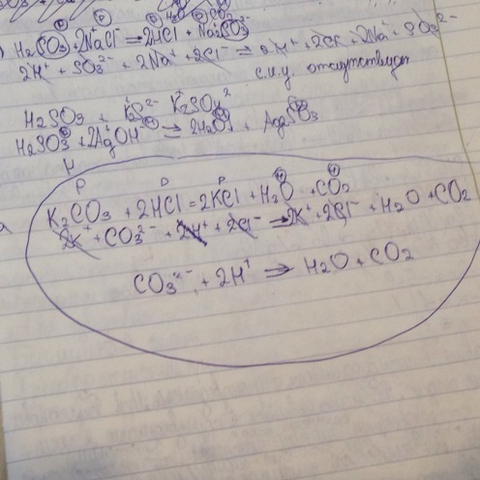 H₂SO₃ + 2NaCl⁻ → 2HCl + Na₂SO₃
2H⁺ + SO₃²⁻ + 2Na⁺ + 2Cl⁻ → 2H⁺ + 2Cl⁻ + 2Na⁺ + SO₃²⁻
с.и.у. отсутствует
H₂SO₃ + K₂S²⁻ K₂SO₄²
H₂SO₃ + 2AgOH → 2H₂O + Ag₂SO₃
Н
Р Р Р
K₂CO₃ + 2HCl = 2KCl + H₂O + CO₂
2K⁺ + CO₃²⁻ + 2H⁺ + 2Cl⁻ → 2K⁺ + 2Cl⁻ + H₂O + CO₂
CO₃²⁻ + 2H⁺ → H₂O + CO₂